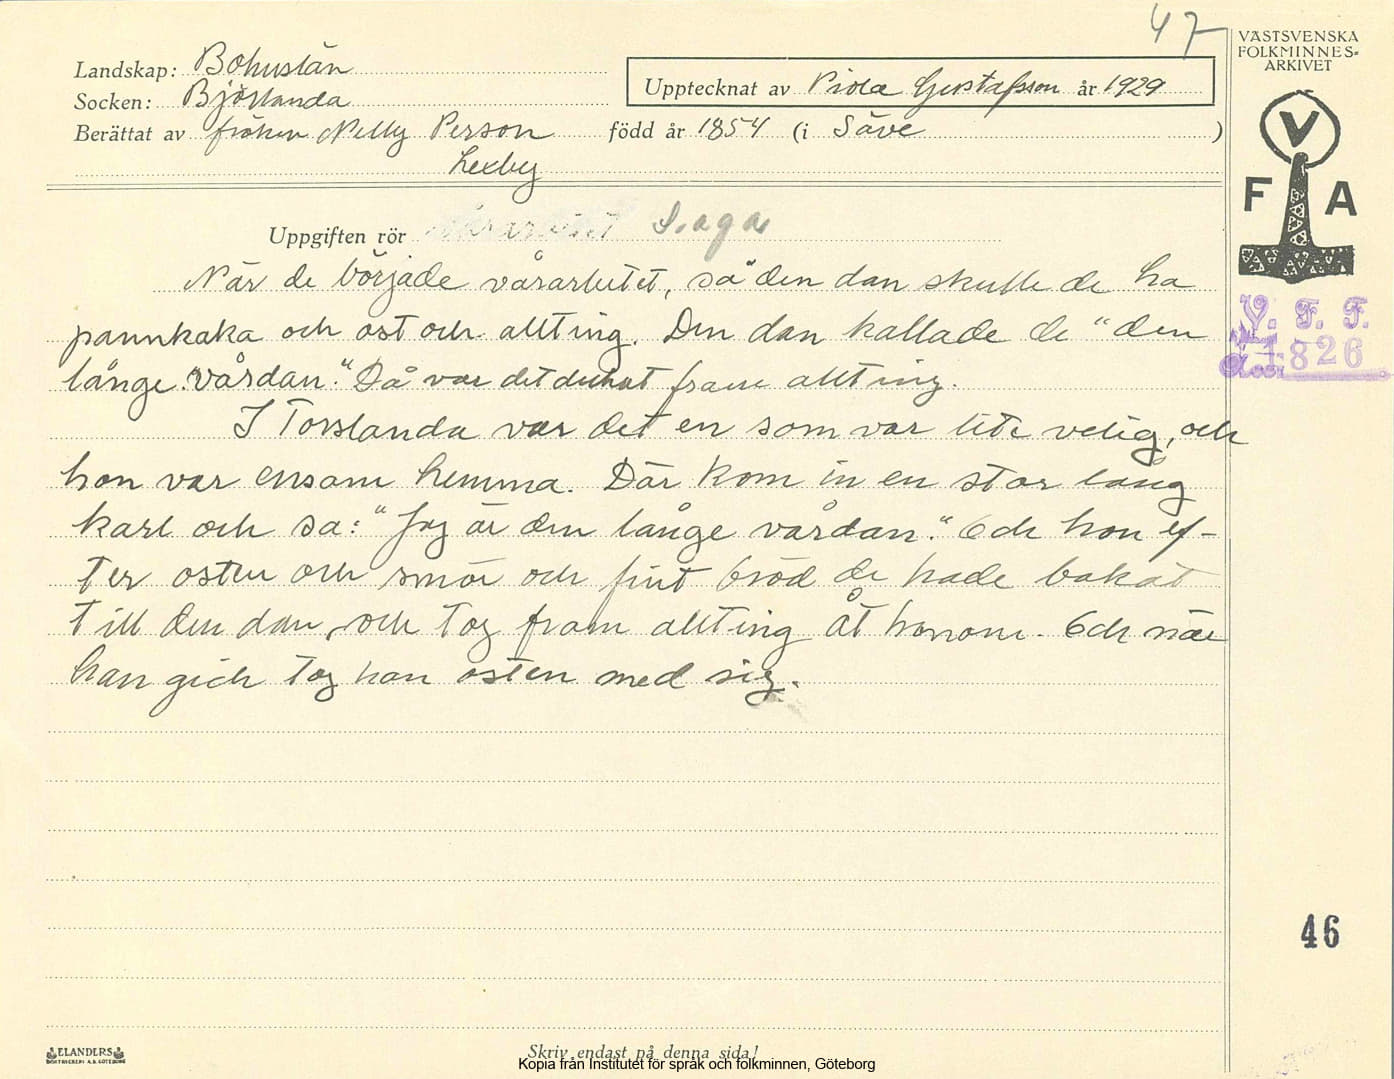 47
VÄSTSVENSKA
FOLKMINNES-
ARKIVET
Landskap: Bohuslän
Socken: Björlanda
Upptecknat av Viola Gustafsson år 1929
Berättat av fröken Nelly Person född år 1854 (i Säve )
Lexby
V
F A
Uppgiften rör Saga
När de började vårarbetet, så den dan skulle de ha
pannkaka och ost och allting. Den dan kallade de "den
långe "vårdan". Då var det dukat fram allting.
I Torslanda var det en som var lite velig, och
hon var ensam hemma. Där kom in en stor lång
karl och sa: "Jag är den långe vårdan". Och hon ef-
ter osten och smör och fint bröd de hade bakat
till den dan, och tog fram allting åt honom. Och när
han gick tog han osten med sig.
V. F. F.
1826
46
ELANDERS
BOKTRYCKERI A.B. GÖTEBORG
Skriv endast på denna sida!
Kopia från Institutet för språk och folkminnen, Göteborg